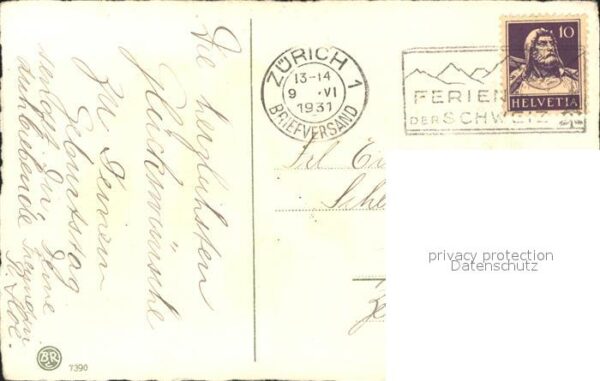 Die herzlichsten
Glückswünsche
zu Deinem
Geburtstag
sendet Dir Deine
dankbare
ZÜRICH 1
13-14
9 VI
1931
BRIEFVERSAND
FERIEN
DER SCHWEIZ
10
HELVETIA
privacy protection
Datenschutz
7390